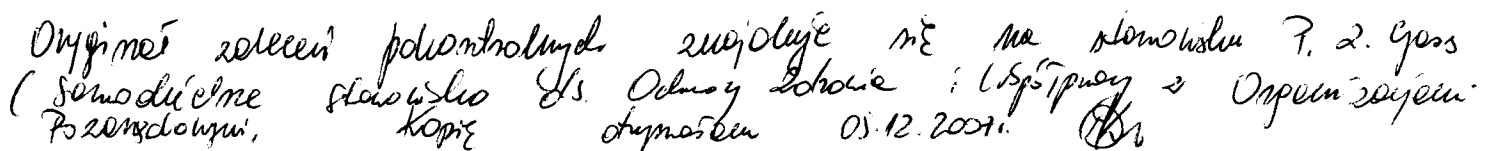 Oryginał zaleceń pokontrolnych znajduje się na stanowisku P. Z. Gass
(Samodzielne stanowisko ds. Ochrony Zdrowia i Współpracy z Organizacjami
Pozarządowymi. Kopię otrzymałem 05.12.2007r.